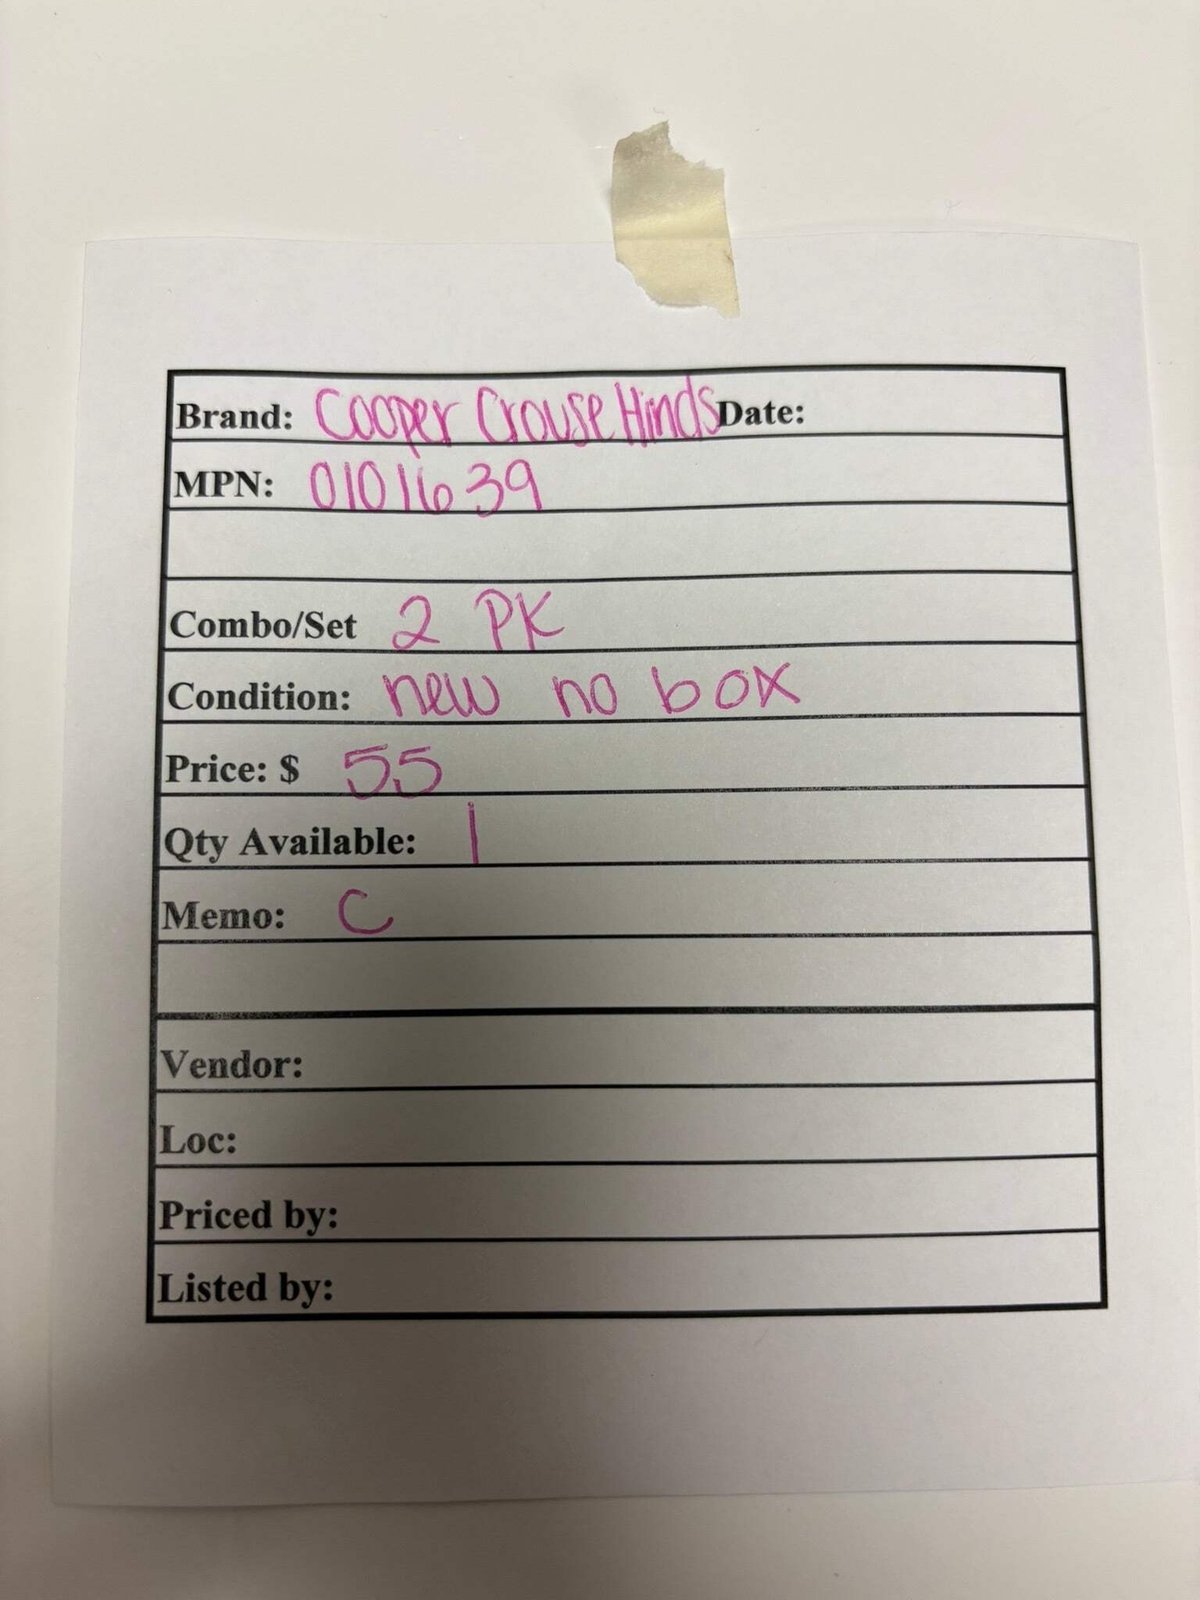 Brand: Cooper Crouse Hinds Date:
MPN: 0101639
Combo/Set 2 PK
Condition: new no box
Price: $ 55
Qty Available: 1
Memo: C
Vendor:
Loc:
Priced by:
Listed by: